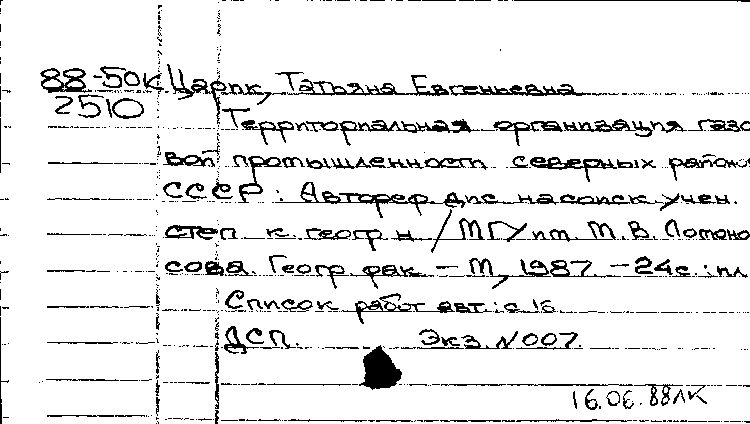 88-50к Царик, Татьяна Евгеньевна
2510
Территориальная организация газо
вой промышленности северных районов
СССР: Автореф. дис. на соиск. учен.
степ. к. геогр. н. / МГУ им. М. В. Ломоно
сова. Геогр. фак. - М., 1987. - 24 с.: ил.
Список работ авт.: с. 16.
ДСП. Экз. N 007.
16.06.88 ЛК